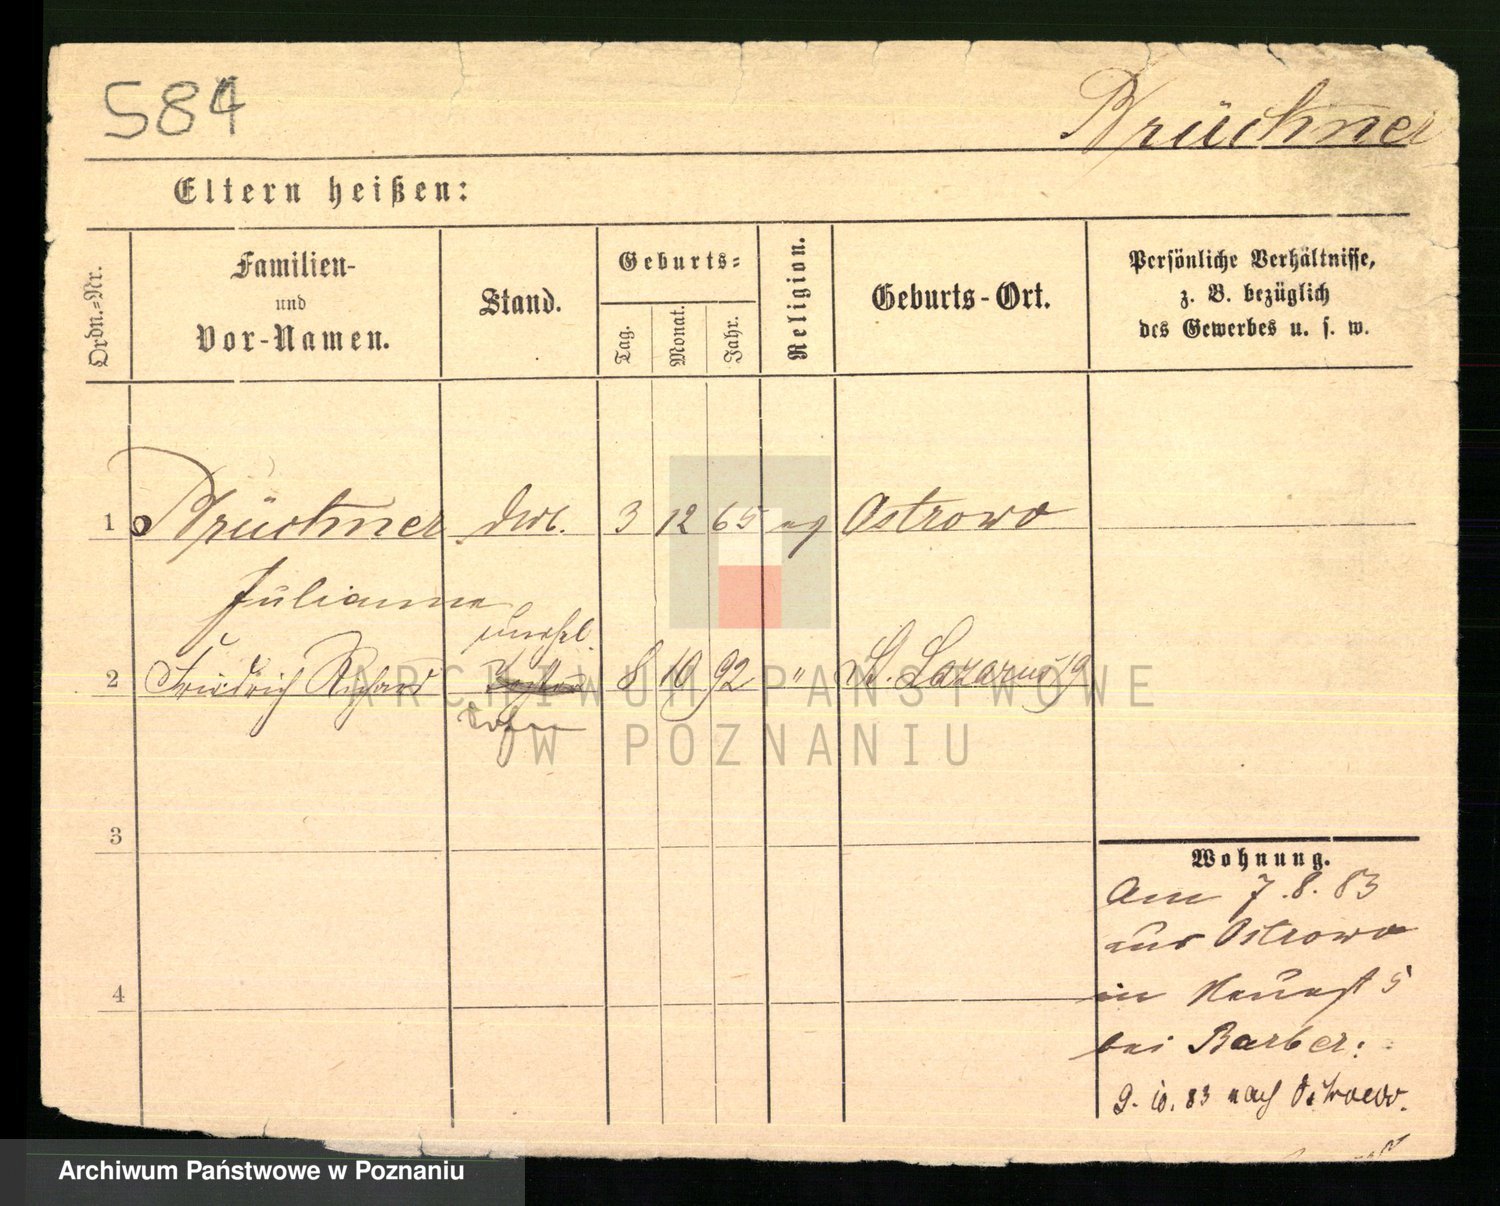 584
Brückner
Eltern heißen:
Ordn.-Nr.
Familien-
und
Vor-Namen.
Stand.
Geburts-
Tag.
Monat.
Jahr.
Religion.
Geburts-Ort.
Persönliche Verhältnisse,
z. B. bezüglich
des Gewerbes u. s. w.
1 Brückner 3 12 65 ev Ostrowo
Julianna
unehel.
2 Friedrich Richard 8 10 92 " St. Lazarus 19
Sohn
3
4
Wohnung.
Am 7.8.83
aus Ostrowo
in 5
bei Barber:
9. 10. 83 nach Ostrowo.
ARCHIWUM PAŃSTWOWE
W POZNANIU
Archiwum Państwowe w Poznaniu